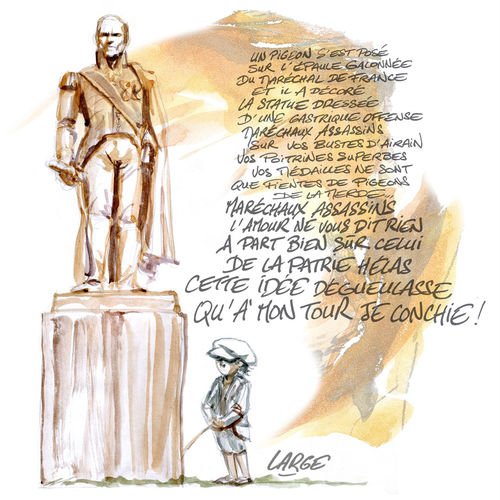 UN PIGEON S'EST POSÉ
SUR L'ÉPAULE GALONNÉE
DU MARÉCHAL DE FRANCE
ET IL A DÉCORÉ
LA STATUE DRESSÉE
D'UNE GASTRIQUE OFFENSE
MARÉCHAUX ASSASSINS
SUR VOS BUSTES D'AIRAIN
VOS POITRINES SUPERBES
VOS MÉDAILLES NE SONT
QUE FIENTES DE PIGEONS
DE LA MERDE...
MARÉCHAUX ASSASSINS
L'AMOUR NE VOUS DIT RIEN
A PART BIEN SUR CELUI
DE LA PATRIE HÉLAS
CETTE IDÉE DÉGUEULASSE
QU'À MON TOUR JE CONCHIE !
LARGE